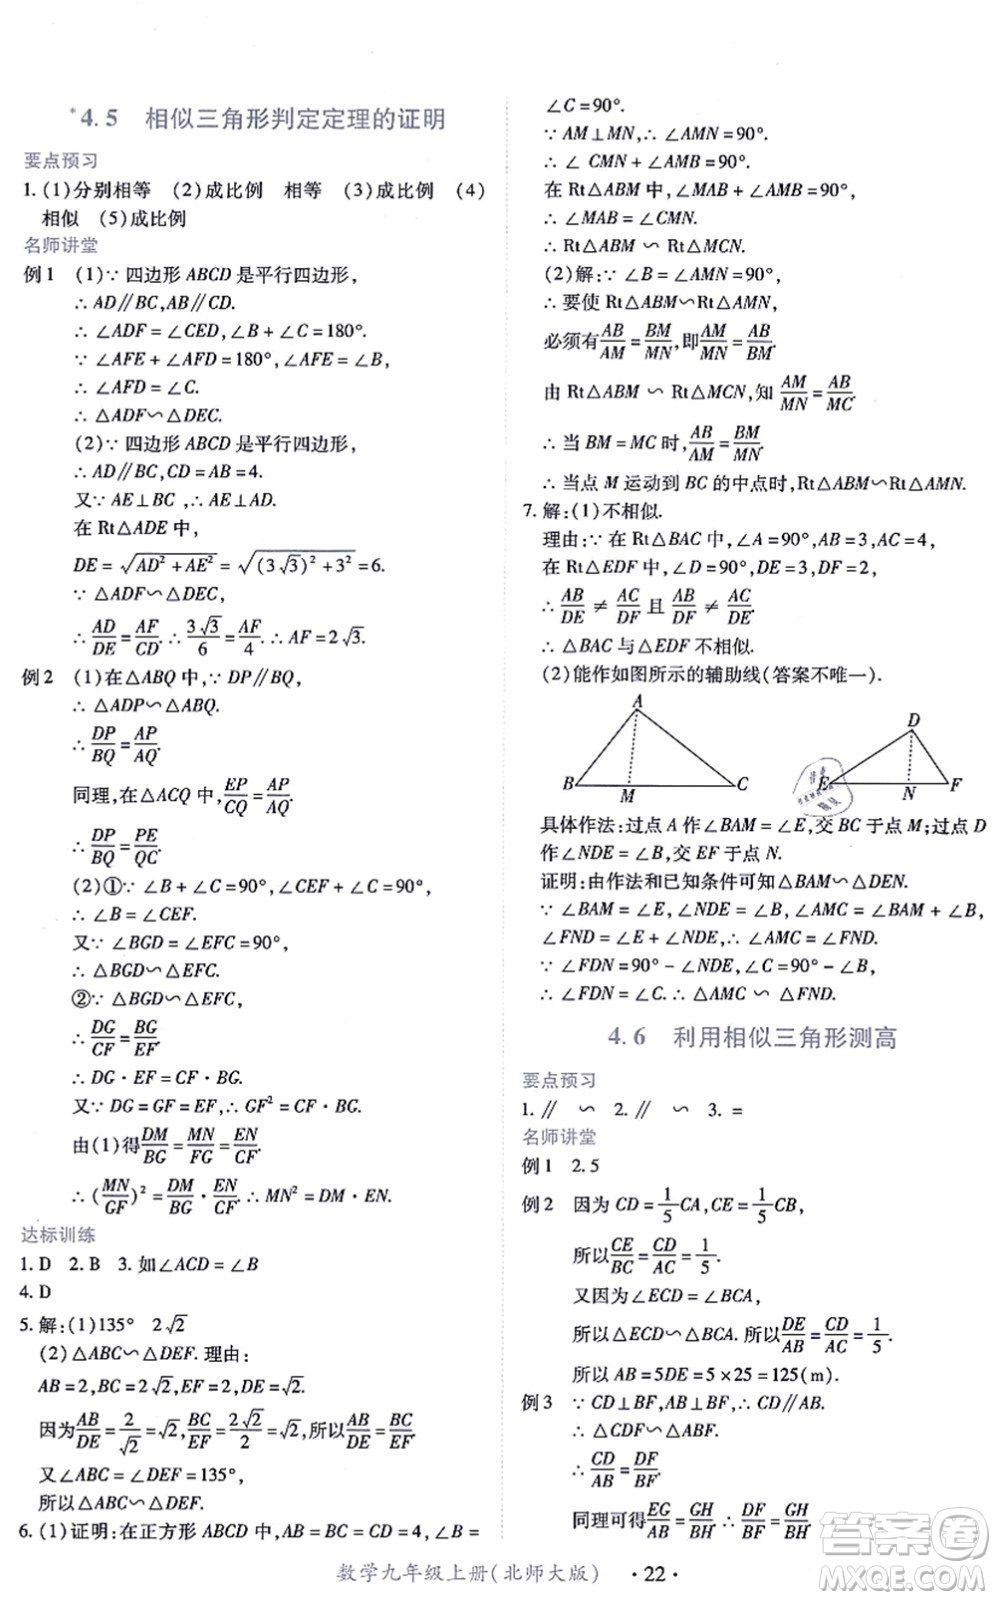 *4.5 相似三角形判定定理的证明
要点预习
1.(1)分别相等 (2)成比例 相等 (3)成比例 (4)
相似 (5)成比例
名师讲堂
例1 (1)∵ 四边形 ABCD 是平行四边形,
∴ AD∥BC,AB∥CD.
∴ ∠ADF = ∠CED,∠B + ∠C = 180°.
∵ ∠AFE + ∠AFD = 180°,∠AFE = ∠B,
∴ ∠AFD = ∠C.
∴ △ADF∽△DEC.
(2)∵ 四边形 ABCD 是平行四边形,
∴ AD∥BC,CD = AB = 4.
又∵ AE⊥BC ,∴ AE⊥AD.
在 Rt△ADE 中,
DE = √(AD² + AE²) = √((3√3)² + 3²) = 6.
∵ △ADF∽△DEC,
∴ AD/DE = AF/CD. ∴ 3√3/6 = AF/4. ∴ AF = 2√3.
例2 (1)在△ABQ 中,∵ DP∥BQ,
∴ △ADP∽△ABQ.
∴ DP/BQ = AP/AQ.
同理,在△ACQ 中,EP/CQ = AP/AQ.
∴ DP/BQ = PE/QC.
(2)①∵ ∠B + ∠C = 90°,∠CEF + ∠C = 90°,
∴ ∠B = ∠CEF.
又∵ ∠BGD = ∠EFC = 90°,
∴ △BGD∽△EFC.
②∵ △BGD∽△EFC,
∴ DG/CF = BG/EF.
∴ DG · EF = CF · BG.
又∵ DG = GF = EF,∴ GF² = CF · BG.
由(1)得 DM/BG = MN/FG = EN/CF.
∴ (MN/GF)² = DM/BG · EN/CF. ∴ MN² = DM · EN.
达标训练
1. D 2. B 3. 如∠ACD = ∠B
4. D
5. 解:(1)135° 2√2
(2)△ABC∽△DEF. 理由:
AB = 2,BC = 2√2,EF = 2,DE = √2,
因为 AB/DE = 2/√2 = √2, BC/EF = 2√2/2 = √2,所以 AB/DE = BC/EF.
又∠ABC = ∠DEF = 135°,
所以△ABC∽△DEF.
6. (1)证明:在正方形 ABCD 中,AB = BC = CD = 4,∠B =
∠C = 90°.
∵ AM⊥MN,∴ ∠AMN = 90°.
∴ ∠ CMN + ∠AMB = 90°.
在 Rt△ABM 中,∠MAB + ∠AMB = 90°,
∴ ∠MAB = ∠CMN.
∴ Rt△ABM ∽ Rt△MCN.
(2)解:∵ ∠B = ∠AMN = 90°,
∴ 要使 Rt△ABM∽Rt△AMN,
必须有 AB/AM = BM/MN,即 AM/MN = AB/BM.
由 Rt△ABM ∽ Rt△MCN,知 AM/MN = AB/MC.
∴ 当 BM = MC 时, AB/AM = BM/MN.
∴ 当点 M 运动到 BC 的中点时,Rt△ABM∽Rt△AMN.
7. 解:(1)不相似.
理由:∵ 在 Rt△BAC 中,∠A = 90°,AB = 3,AC = 4,
在 Rt△EDF 中,∠D = 90°,DE = 3,DF = 2,
∴ AB/DE ≠ AC/DF 且 AB/DF ≠ AC/DE.
∴ △BAC 与△EDF 不相似.
(2)能作如图所示的辅助线(答案不唯一).
A
B M C
D
E N F
具体作法:过点 A 作∠BAM = ∠E,交 BC 于点 M;过点 D
作∠NDE = ∠B,交 EF 于点 N.
证明:由作法和已知条件可知△BAM∽△DEN.
∵ ∠BAM = ∠E,∠NDE = ∠B,∠AMC = ∠BAM + ∠B,
∠FND = ∠E + ∠NDE,∴ ∠AMC = ∠FND.
∵ ∠FDN = 90° - ∠NDE,∠C = 90° - ∠B,
∴ ∠FDN = ∠C. ∴ △AMC ∽ △FND.
4.6 利用相似三角形测高
要点预习
1. ∥ ∽ 2. ∥ ∽ 3. =
名师讲堂
例1 2.5
例2 因为 CD = 1/5 CA,CE = 1/5 CB,
所以 CE/BC = CD/AC = 1/5.
又因为∠ECD = ∠BCA,
所以△ECD∽△BCA. 所以 DE/AB = CD/AC = 1/5.
所以 AB = 5DE = 5 × 25 = 125(m).
例3 ∵ CD⊥BF,AB⊥BF,∴ CD∥AB.
∴ △CDF∽△ABF.
∴ CD/AB = DF/BF.
同理可得 EG/AB = GH/BH. ∴ DF/BF = GH/BH.
数学九年级上册(北师大版) · 22 ·
答案卷
MXQE.COM